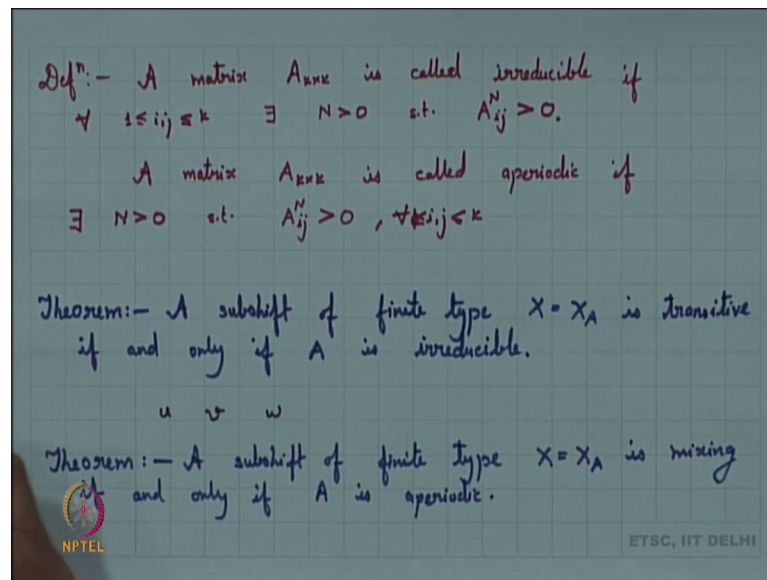 Defⁿ:- A matrix A_{k×k} is called irreducible if
∀ 1≤i,j≤k ∃ N>0 s.t. A^N_{ij} > 0.
A matrix A_{k×k} is called aperiodic if
∃ N>0 s.t. A^N_{ij} > 0 , ∀ 1≤i,j≤k
Theorem:- A subshift of finite type X = X_A is transitive
if and only if A is irreducible.
u v w
Theorem:- A subshift of finite type X = X_A is mixing
if and only if A is aperiodic.
NPTEL
ETSC, IIT DELHI